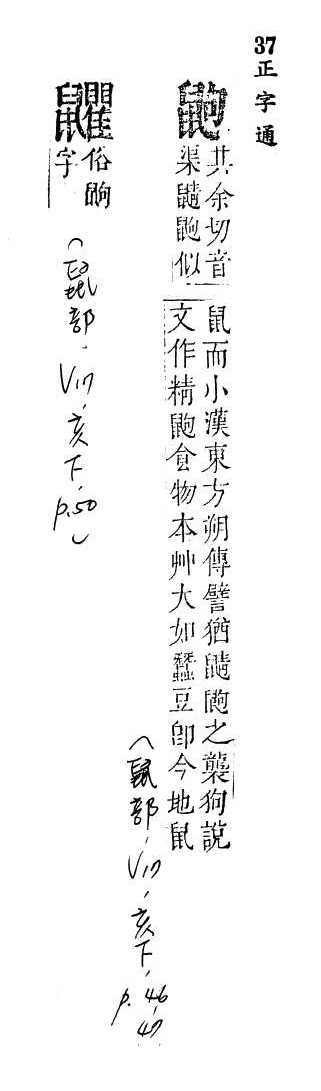 37正字通
鼩
其余切音
渠鼱鼩似
鼠而小漢東方朔傳譬猶鼱鼩之襲狗說
文作精鼩食物本艸大如蠶豆卽今地鼠
(鼠部, V17, 亥下, p.46,47
俗鼩
字
(鼠部, V17, 亥下, p.50)